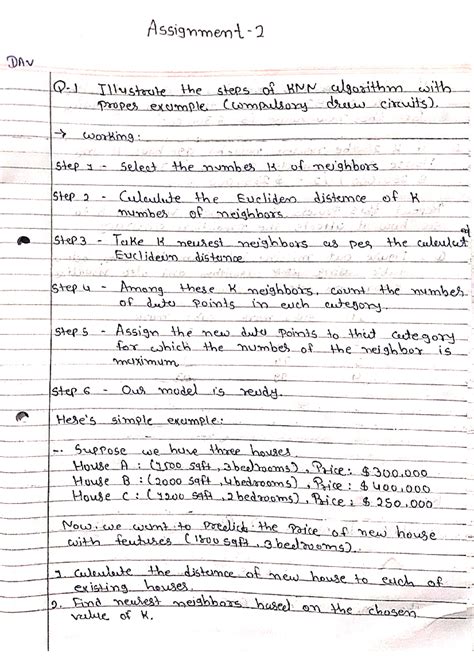 Assignment-2
DAV
Q-1 Illustrate the steps of KNN algorithm with
proper example (compulsory draw circuits).
→ working:
Step 1 - Select the number K of neighbors
Step 2 - Calculate the Eucliden distance of K
number of neighbors
Step 3 - Take K nearest neighbors as per the calculated
Euclidean distance
Step 4 - Among these K neighbors, count the number
of data points in each category.
Step 5 - Assign the new data points to that category
for which the number of the neighbor is
maximum
Step 6 - Our model is ready.
Here's simple example:
-. Suppose we have three houses.
House A : (1500 sqft, 3 bedrooms), Price: $300,000
House B : (2000 sqft, 4 bedrooms), Price: $400,000
House C : (1200 sqft, 2 bedrooms), Price: $250,000
Now, we want to predict the price of new house
with features (1800 sqft, 3 bedrooms).
1. calculate the distance of new house to each of
existing houses.
2. Find nearest neighbors based on the chosen
value of K.